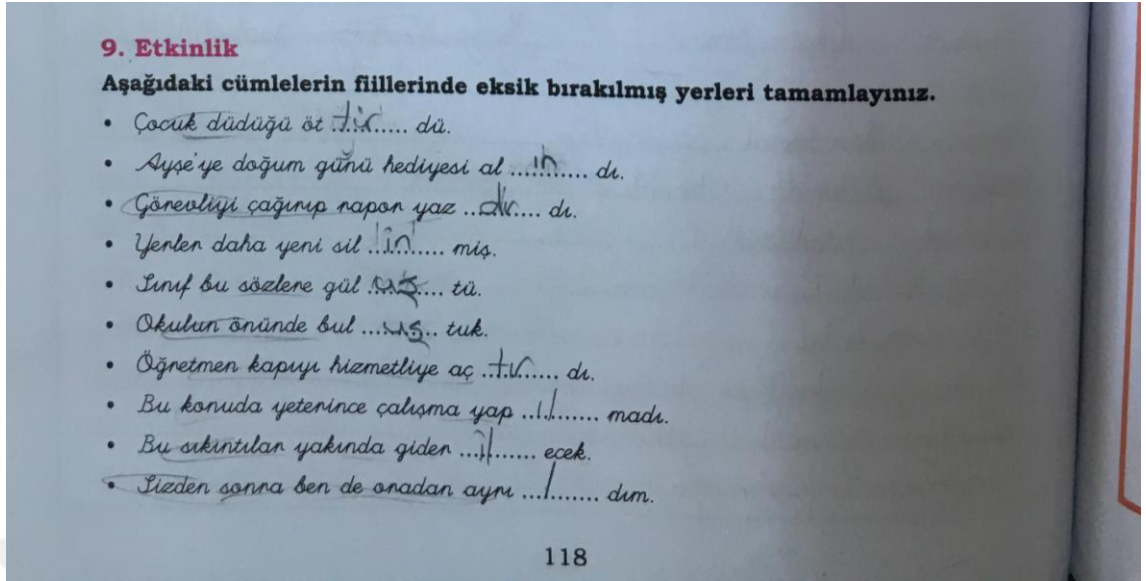 9. Etkinlik
Aşağıdaki cümlelerin fiillerinde eksik bırakılmış yerleri tamamlayınız.
• Çocuk düdüğü öt .tir..... dü.
• Ayşe'ye doğum günü hediyesi al ....ın...... dı.
• Görevliyi çağırıp rapor yaz ..dır.... dı.
• Yerler daha yeni sil ..in...... miş.
• Sınıf bu sözlere gül .üş.... tü.
• Okulun önünde bul ...uş.. tuk.
• Öğretmen kapıyı hizmetliye aç ..tır...... dı.
• Bu konuda yeterince çalışma yap ..ıl....... madı.
• Bu sıkıntılar yakında gider ...il...... ecek.
• Sizden sonra ben de oradan ayrı ...l....... dım.
118